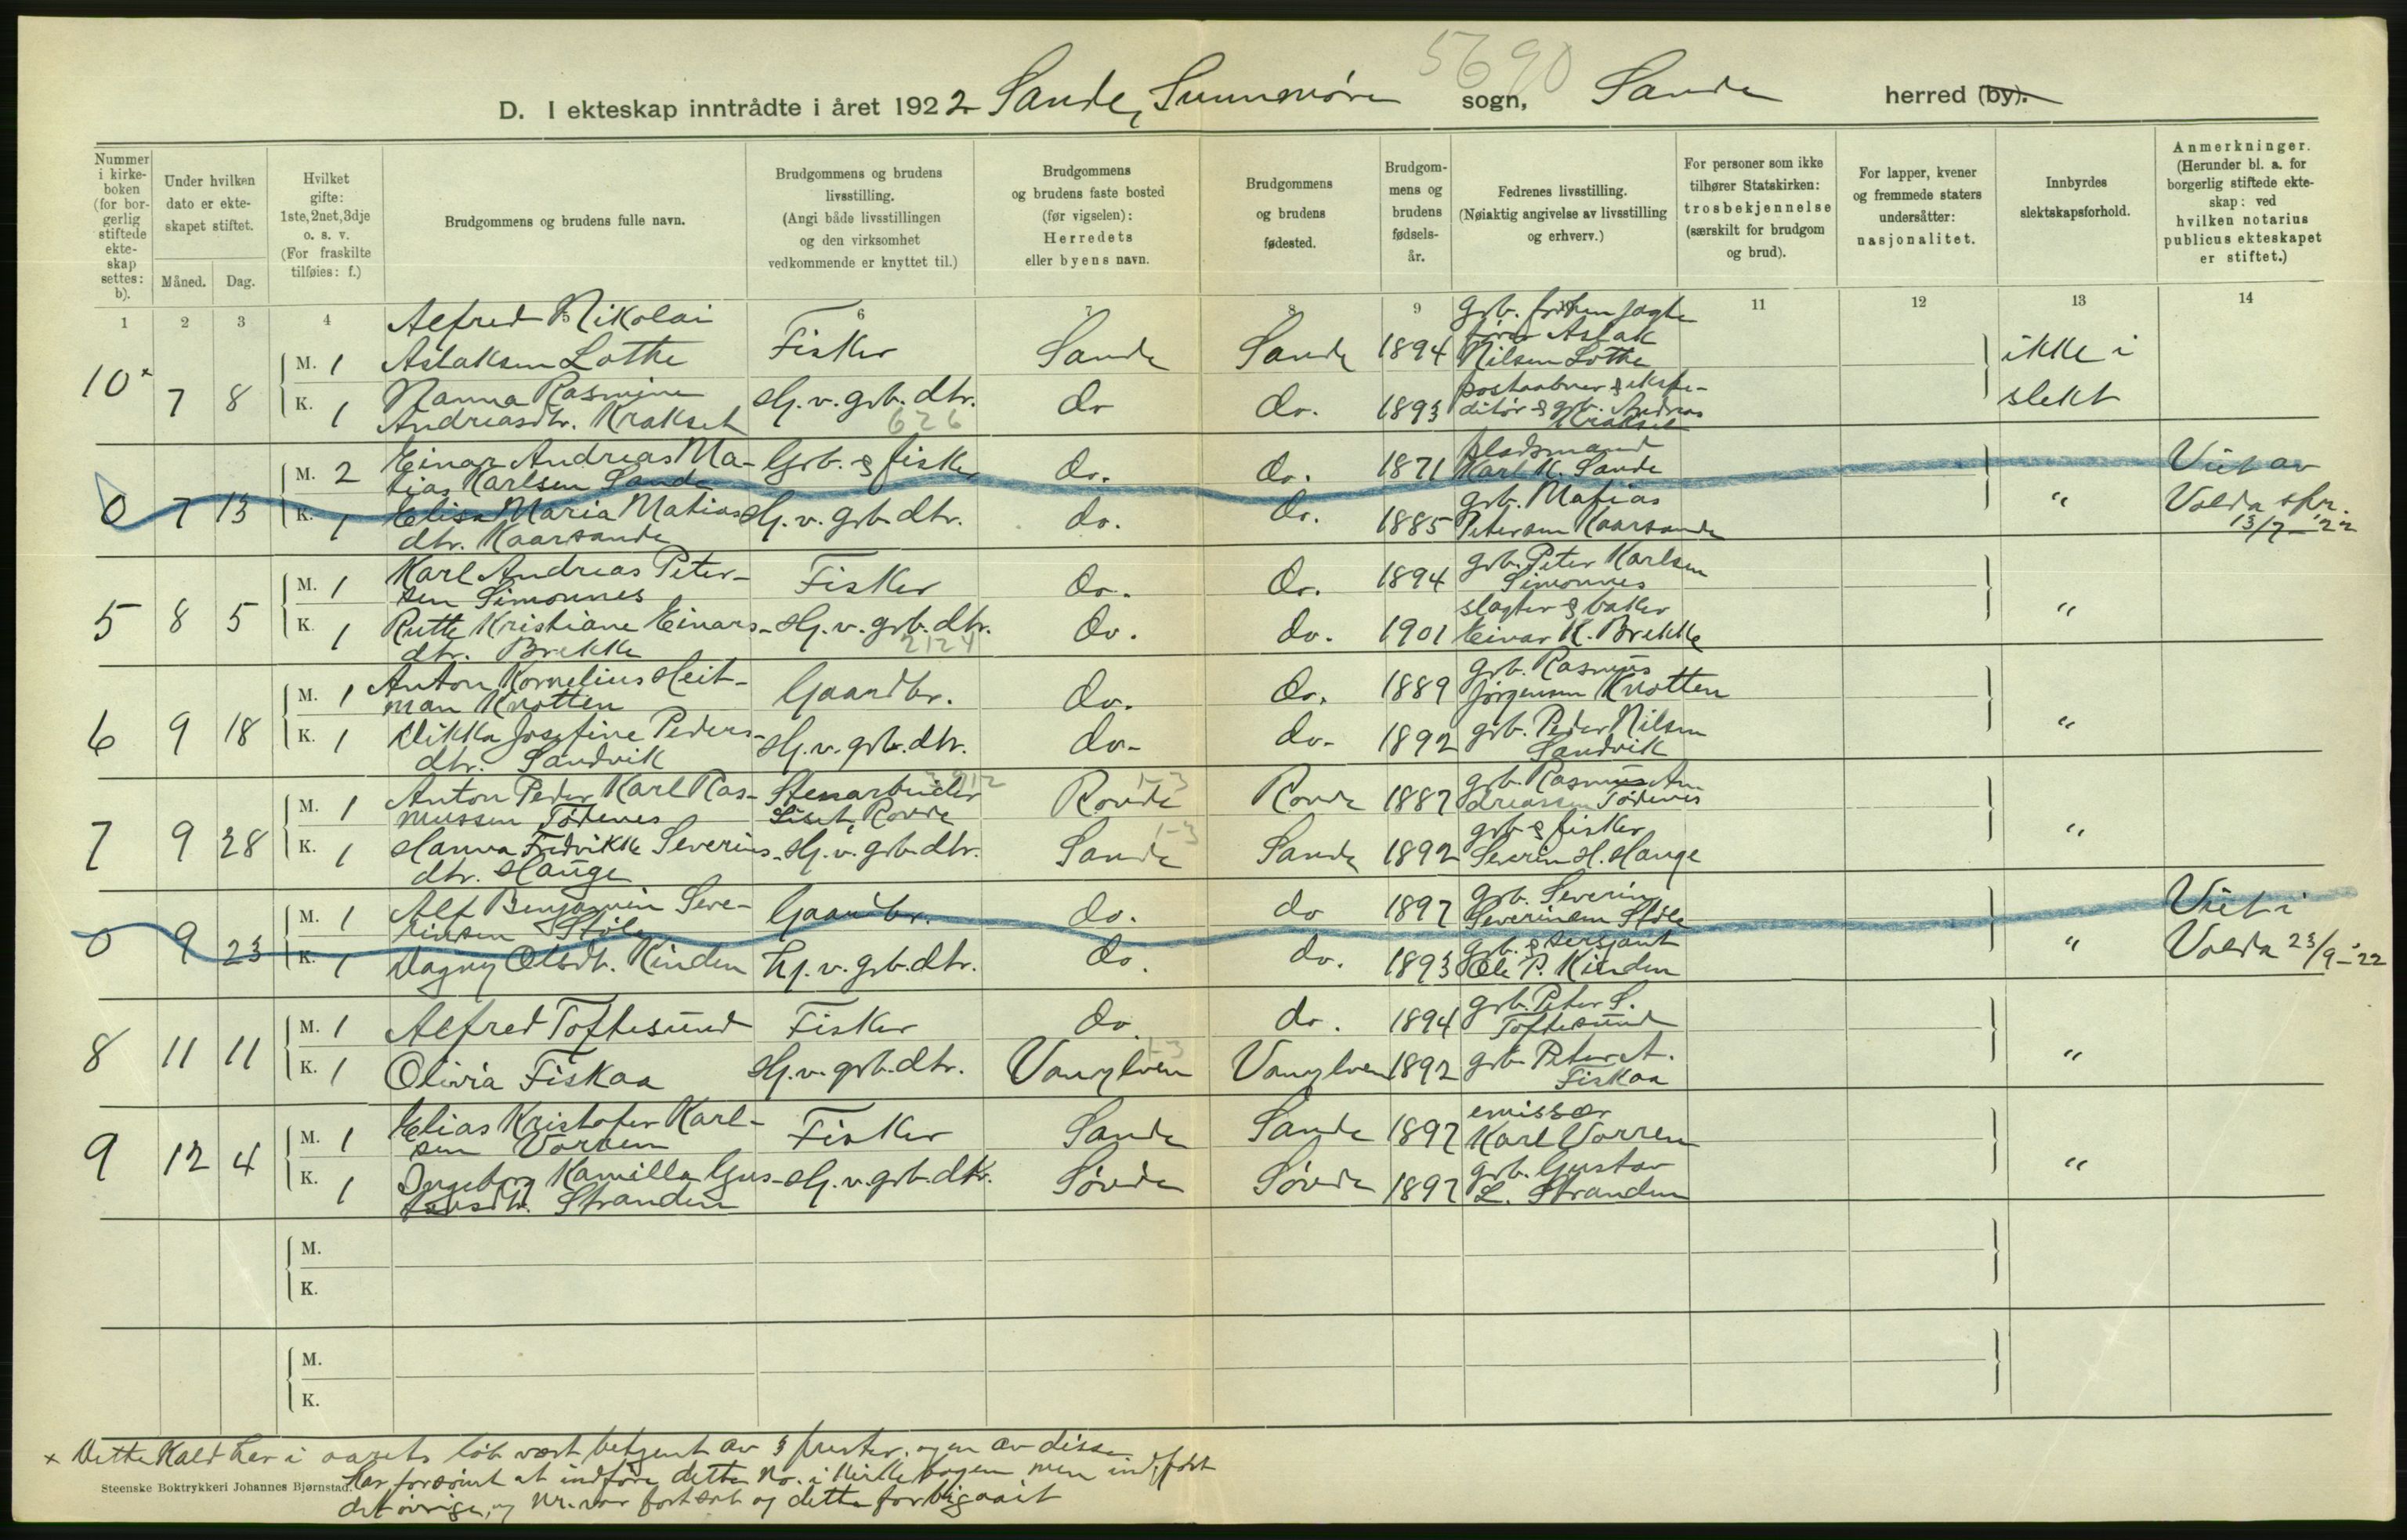 5690
D. I ekteskap inntrådte i året 1922 Sande, Sunnmøre sogn, Sande herred (by).
Nummer i kirkeboken (for borgerlig stiftede ekteskap settes: b).
Under hvilken dato er ekteskapet stiftet.
Måned. Dag.
Hvilket gifte: 1ste, 2net, 3dje o. s. v. (For fraskilte tilføies: f.)
Brudgommens og brudens fulle navn.
Brudgommens og brudens livsstilling. (Angi både livsstillingen og den virksomhet vedkommende er knyttet til.)
Brudgommens og brudens faste bosted (før vigselen): Herredets eller byens navn.
Brudgommens og brudens fødested.
Brudgommens og brudens fødselsår.
Fedrenes livsstilling. (Nøiaktig angivelse av livsstilling og erhverv.)
For personer som ikke tilhører Statskirken: trosbekjennelse (særskilt for brudgom og brud).
For lapper, kvener og fremmede staters undersåtter: nasjonalitet.
Innbyrdes slektskapsforhold.
Anmerkninger. (Herunder bl. a. for borgerlig stiftede ekteskap: ved hvilken notarius publicus ekteskapet er stiftet.)
1 2 3 4 5 6 7 8 9 10 11 12 13 14
10x 7 8
M. 1 Alfred Nikolai Aslaksen Lothe Fisker Sande Sande 1894 grb. forhen jagtefører Aslak Nilsen Lothe ikke i slekt
K. 1 Nanna Rasmine Andreasdtr. Krakset Hj. v. grb. dtr. 626 do do. 1893 postaabner & ekspeditør & grb. Andreas Krakset
0 7 13
M. 2 Einar Andreas Matias Karlsen Sande Grb. & fisker do. do. 1871 pladsmand Karl K. Sande Viet av
K. 1 Elisa Maria Matiasdtr. Kaarsande Hj. v. grb. dtr. do. do. 1885 grb. Matias Petersen Kaarsande " Volda spr. 13/7-'22
5 8 5
M. 1 Karl Andreas Petersen Simonnes Fisker do. do. 1894 grb. Peter Karlsen Simonnes
K. 1 Rutte Kristiane Einarsdtr. Brekke Hj. v. grb. dtr. 2124 do. do. 1901 slagter & baker Einar K. Brekke "
6 9 18
M. 1 Anton Kornelius Heitman Knotten Gaardbr. do. do. 1889 grb. Rasmus Jørgensen Knotten
K. 1 Vikka Josefine Pedersdtr. Sandvik Hj. v. grb. dtr. do- do- 1892 grb. Peder Nilsen Sandvik "
7 9 28
M. 1 Anton Peder Karl Rasmussen Tødenes Stenarbeider Liset, Rovde Rovde 1-3 Rovde 1887 grb. Rasmus Andreassen Tødenes
K. 1 Hanna Fredrikke Severinsdtr. Hauge Hj. v. grb. dtr. Sande 1-3 Sande 1892 grb. & fisker Severin H. Hauge "
0 9 23
M. 1 Alf Benjamin Severinsen Støle Gaardbr. do. do 1897 grb. Severin Severinsen Støle Viet i
K. 1 Dagny Olsdt. Kinden hj. v. grb. dtr. do. do. 1893 grb. & sersjant Ole P. Kinden " Volda 23/9-'22
8 11 11
M. 1 Alfred Toftesund Fisker do. do. 1894 grb. Peter S. Toftesund
K. 1 Olivia Fiskaa Hj. v. grb. dtr. Vanylven 1-3 Vanylven 1892 grb. Peter A. Fiskaa "
9 12 4
M. 1 Elias Kristofer Karlsen Vorren Fisker Sande Sande 1897 emissær Karl Vorren
K. 1 Ingeborg Kamilla Gustavsdtr. Stranden Hj. v. grb. dtr. Søvde Søvde 1897 grb. Gustav L. Stranden "
M.
K.
M.
K.
x Dette kald har i aarets løb vært betjent av 3 prester, og en av disse
har forsømt at indføre dette No. i kirkebogen men indført
det øvrige, og Nr. var fortsat og dette forbigaait
Steenske Boktrykkeri Johannes Bjørnstad.